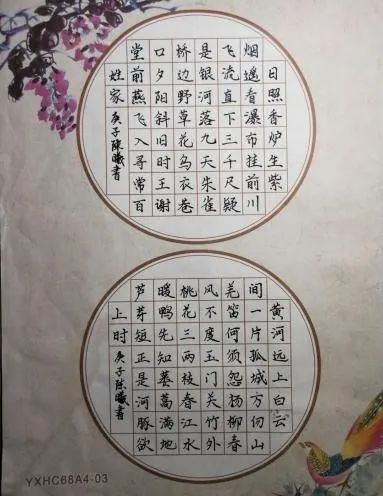 日照香炉生紫
烟遥看瀑布挂前川
飞流直下三千尺疑
是银河落九天朱雀
桥边野草花乌衣巷
口夕阳斜旧时王谢
堂前燕飞入寻常百
姓家 庚子陈曦书
黄河远上白云
间一片孤城万仞山
羌笛何须怨杨柳春
风不度玉门关竹外
桃花三两枝春江水
暖鸭先知蒌蒿满地
芦芽短正是河豚欲
上时 庚子陈曦书
YXHC68A4-03